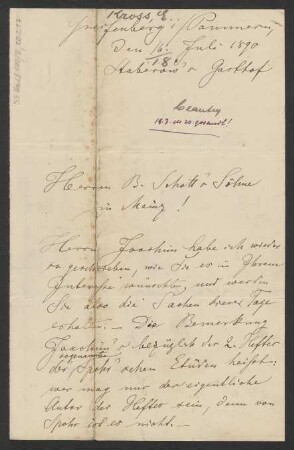 Kross, E.
Greifenberg i/Pommern,
den 16. Juli 1890
18
Gasthof
Herren B. Schott's Söhne
in Mainz!
Herrn Joachim habe ich wieder
so geschrieben, wie Sie es in Ihrem
Interesse wünschten, und werden
Sie also die Sachen dieser Tage
erhalten. – Die Bemerkung
Joachim's bezüglich der 2. Hefter
der Spohr'schen Etüden heisst:
wer mag nur der eigentliche
Autor der Hefter sein, denn von
Spohr ist es nicht. –